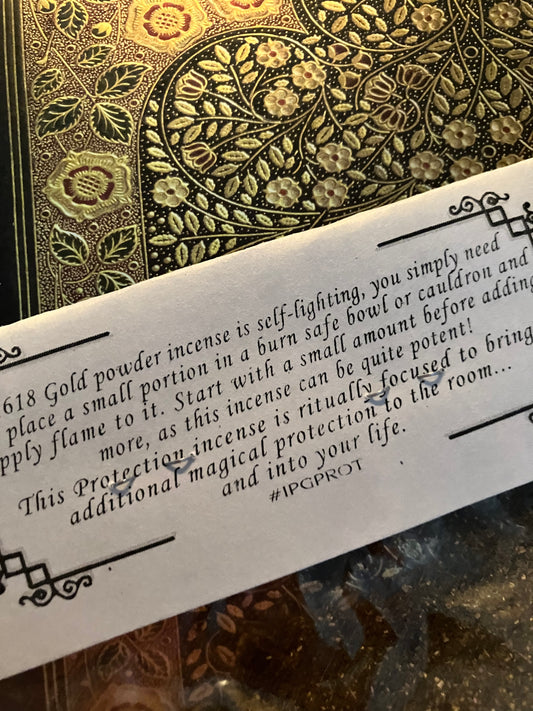 1618 Gold powder incense is self-lighting, you simply need
place a small portion in a burn safe bowl or cauldron and
apply flame to it. Start with a small amount before adding
more, as this incense can be quite potent!
This Protection incense is ritually focused to bring
additional magical protection to the room...
and into your life.
#IPGPROT